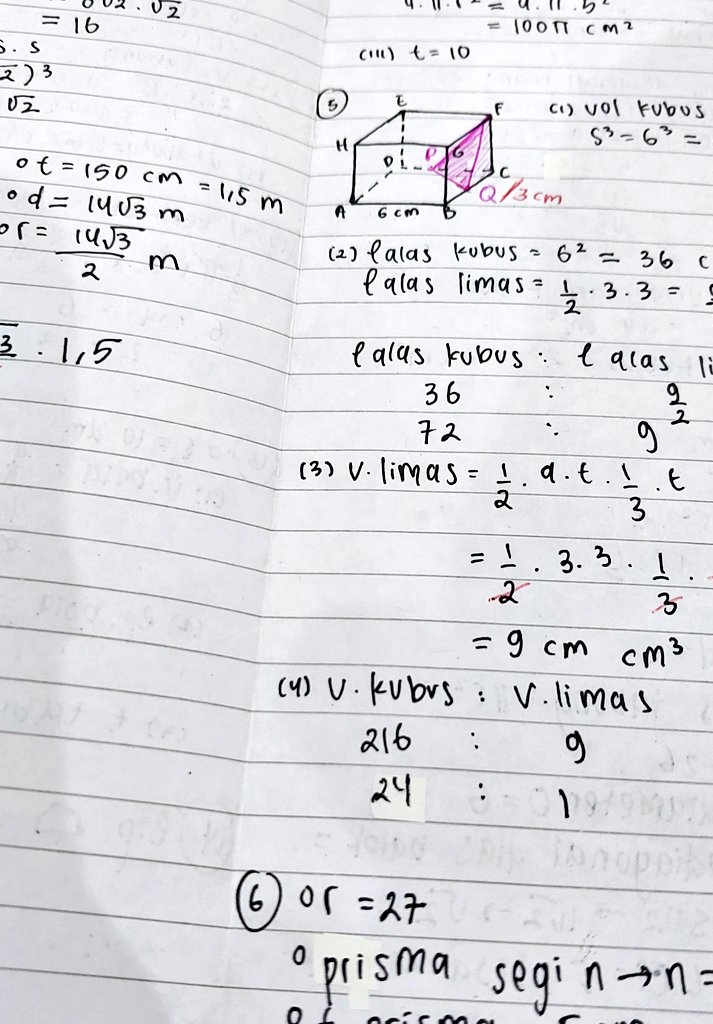 √2 . √2
= 16
s . s
√2
o t = 150 cm = 1,5 m
o d = 14√3 m
or = 14√3/2 m
. 1,5
= 100π cm²
(iii) t = 10
5
E
F
H
G
D
P
C
Q
A
B
6 cm
3 cm
(1) vol kubus
s³ = 6³ =
(2) l alas kubus = 6² = 36
l alas limas = 1/2 . 3 . 3 =
l alas kubus : l alas
36 : 9/2
72 : 9
(3) V. limas = 1/2 . a . t . 1/3 . t
= 1/2 . 3 . 3 . 1/3 .
= 9 cm cm³
(4) V. kubus : V. limas
216 : 9
24 : 1
6 o r = 27
o prisma segi n → n =